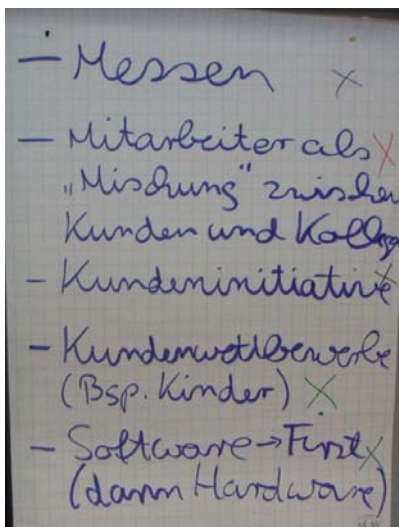 - Messen X
- Mitarbeiter als X
„Mischung" zwischen
Kunden und
- Kundeninitiative X
- Kundenwettbewerbe
(Bsp. Kinder) X
- Software → First X
(dann Hardware)